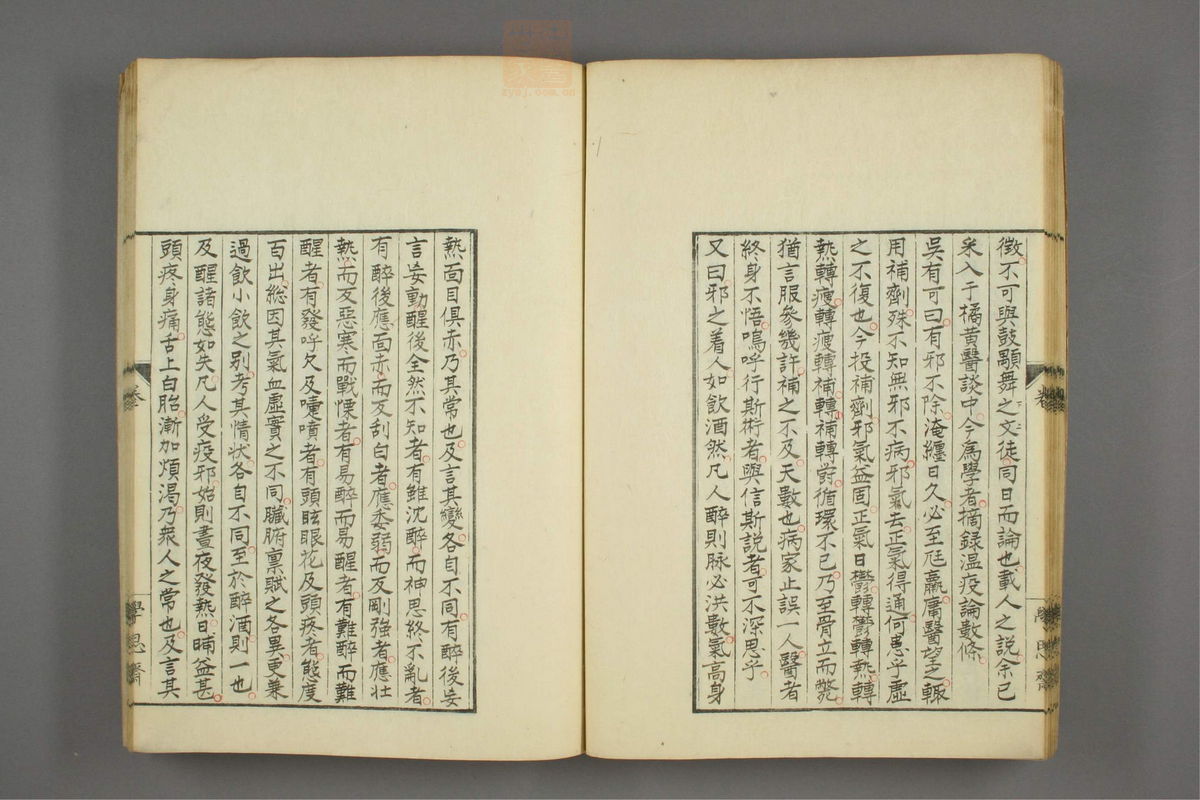 徵不可與鼓顒舞之文徒同日而論也載人之説余已
采入于橘黃醫談中今為學者摘録溫疫論數條
吳有可曰有邪不除淹纏日久必至尩羸庸醫望之輒
用補劑殊不知無邪不病邪氣去正氣得通何患乎虛
之不復也今投補劑邪氣益固正氣日鬱轉鬱轉熱轉
熱轉瘦轉瘦轉補轉補轉鬱循環不已乃至骨立而斃
猶言服參幾許補之不及天數也病家止誤一人醫者
終身不悟嗚呼行斯術者與信斯説者可不深思乎
又曰邪之着人如飲酒然凡人醉則脉必洪數氣高身
熱面目俱赤乃其常也及言其變各自不同有醉後妄
言妄動醒後全然不知者有雖沈醉而神思終不亂者
有醉後應面赤而反刮白者應委弱而反剛強者應壯
熱而反惡寒而戰慄者有易醉而易醒者有難醉而難
醒者有發呼欠及嚏噴者有頭眩眼花及頭疼者態度
百出總因其氣血虛實之不同臟腑禀賦之各異更兼
過飲小飲之别考其情状各自不同至於醉酒則一也
及醒諸態如失凡人受疫邪始則晝夜發熱日晡益甚
頭疼身痛舌上白胎漸加煩渴乃衆人之常也及言其
卷
學思齋